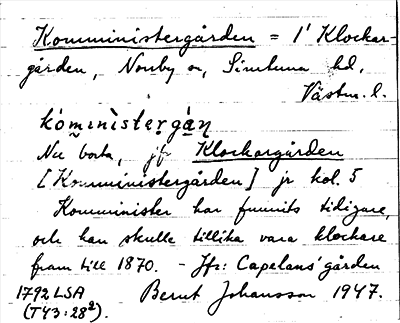 Komministergården = 1' Klockar-
gården, Norrby sn, Simtuna hd,
Västm. l.
kòministergàṇ
Nu borta, jfr Klockargården
[Komministergården] jr kol. 5
Komminister har funnits tidigare,
och han skulle tillika vara klockare
fram till 1870. - Jfr: Capelans' gården
1792 LSA
(T43:28²).
Bernt Johansson 1947.